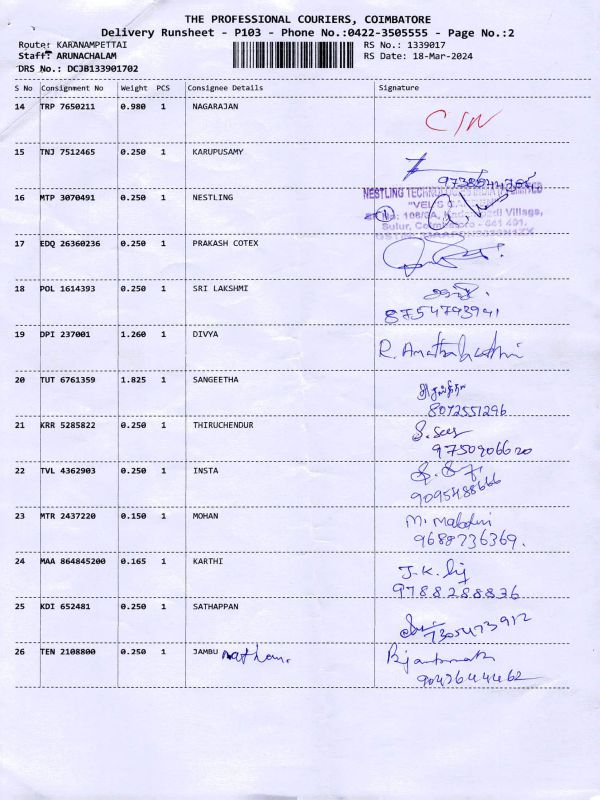 THE PROFESSIONAL COURIERS, COIMBATORE
Delivery Runsheet - P103 - Phone No.:0422-3505555 - Page No.:2
Route: KARANAMPETTAI RS No.: 1339017
Staff: ARUNACHALAM RS Date: 18-Mar-2024
DRS No.: DCJB133901702
S No Consignment No Weight PCS Consignee Details Signature
14 TRP 7650211 0.980 1 NAGARAJAN
15 TNJ 7512465 0.250 1 KARUPUSAMY
16 MTP 3070491 0.250 1 NESTLING
NESTLING
Sulur,
17 EDQ 26360236 0.250 1 PRAKASH COTEX
18 POL 1614393 0.250 1 SRI LAKSHMI
8754793941
19 DPI 237001 1.260 1 DIVYA
20 TUT 6761359 1.825 1 SANGEETHA
8072551296
21 KRR 5285822 0.250 1 THIRUCHENDUR
9750906620
22 TVL 4362903 0.250 1 INSTA
9095488666
23 MTR 2437220 0.150 1 MOHAN
9688736369.
24 MAA 864845200 0.165 1 KARTHI
J.K.
9788288836
25 KDI 652481 0.250 1 SATHAPPAN
7305473912
26 TEN 2108800 0.250 1 JAMBU nathan.
9042644462